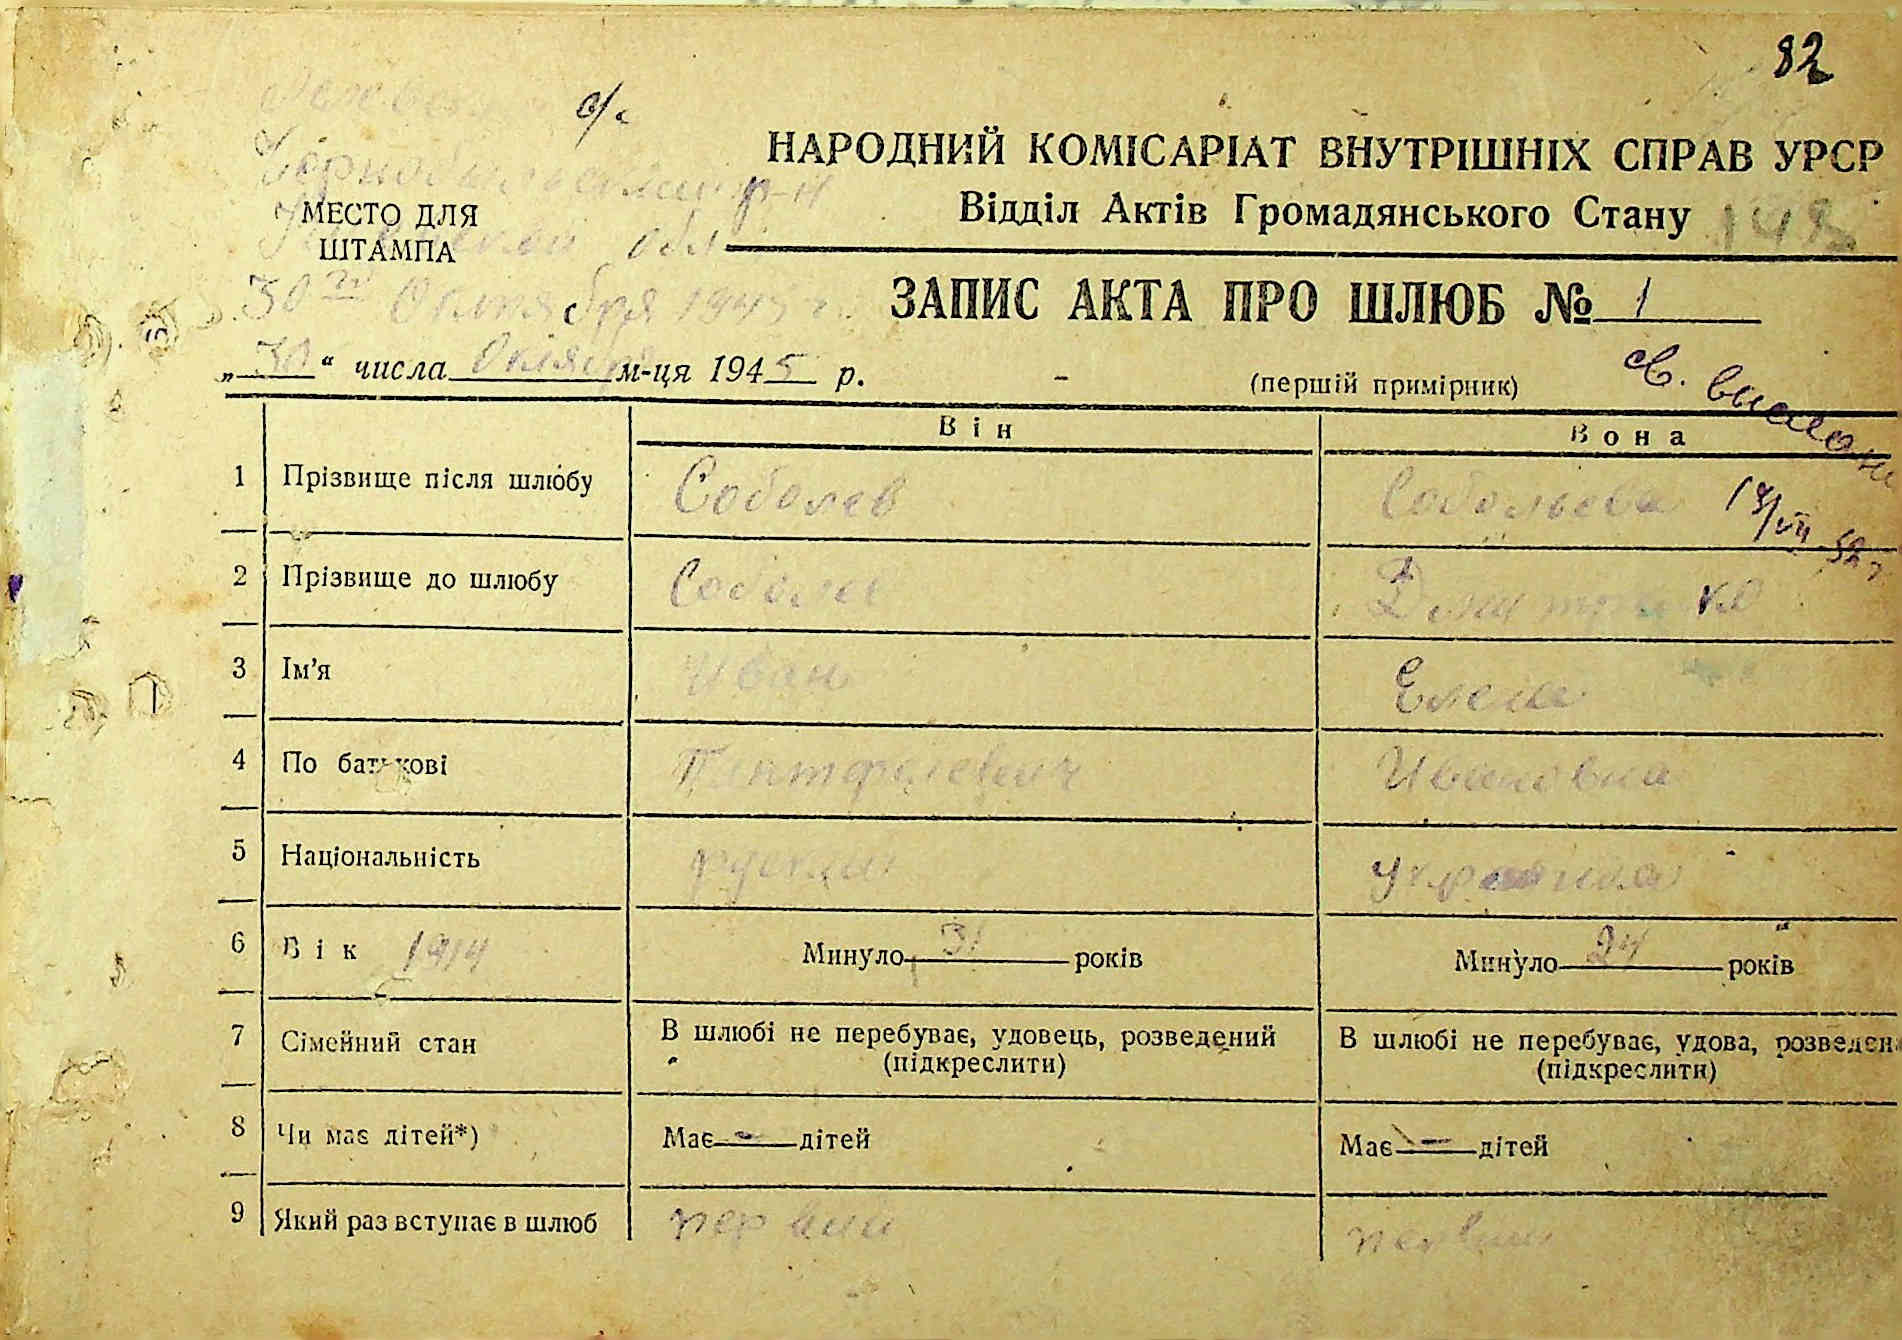 82
с/с
р-н
НАРОДНИЙ КОМІСАРІАТ ВНУТРІШНІХ СПРАВ УРСР
МЕСТО ДЛЯ
ШТАМПА
обл
Відділ Актів Громадянського Стану
30го Октября 1945 г.
ЗАПИС АКТА ПРО ШЛЮБ № 1
„30“ числа Октября м-ця 1945 р.
(перший примірник)
св.
Він Вона
1 Прізвище після шлюбу Соболев Собольева
2 Прізвище до шлюбу Соболев
3 Ім’я Иван Елена
4 По батькові Пантфилевич Ивановна
5 Національність руский украинка
6 Вік 1914 Минуло 31 років Минуло 24 років
7 Сімейний стан В шлюбі не перебуває, удовець, розведений В шлюбі не перебуває, удова, розведен
(підкреслити) (підкреслити)
8 Чи має дітей*) Має - дітей Має - дітей
9 Який раз вступає в шлюб первый первый